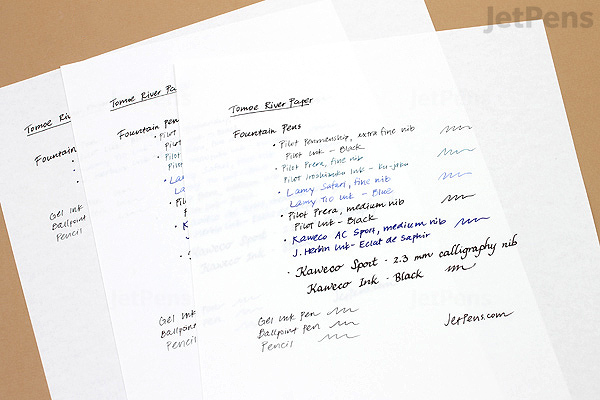 JetPens
Tomoe River
Fountain
Gel Ink
Ballpoint
Pencil
Tomoe River Pa
Fountain Pen
Pilot
Pilot
Pilot
Pilot
Gel Ink Pen
Ballpoint
Pencil
Tomoe River Paper
Fountain Pens
• Pilot Penmanship, extra fine nib
Pilot Ink - Black
• Pilot Prera, fine nib
Pilot Iroshizuku Ink - Ku-jaku
• Lamy Safari, fine nib
Lamy T10 Ink - Blue
• Pilot Prera, medium nib
Pilot Ink - Black
• Kaweco AC Sport, medium nib
J. Herbin Ink - Eclat de Saphir
• Kaweco Sport · 2.3 mm calligraphy nib
Kaweco Ink · Black
Gel Ink Pen
Ballpoint Pen
Pencil
JetPens.com
JetPens
JetPens
JetPens
JetPens